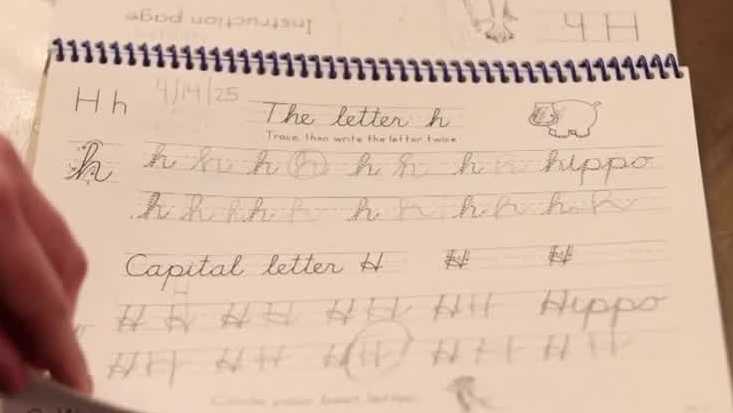 Instruction page
H h
H h 4/14/25
The letter h
Trace, then write the letter twice
h h h h h h h h h hippo
h h h h h h h h h h h
Capital letter H H H
H H H H H H H H Hippo
H H H H H H H H H H